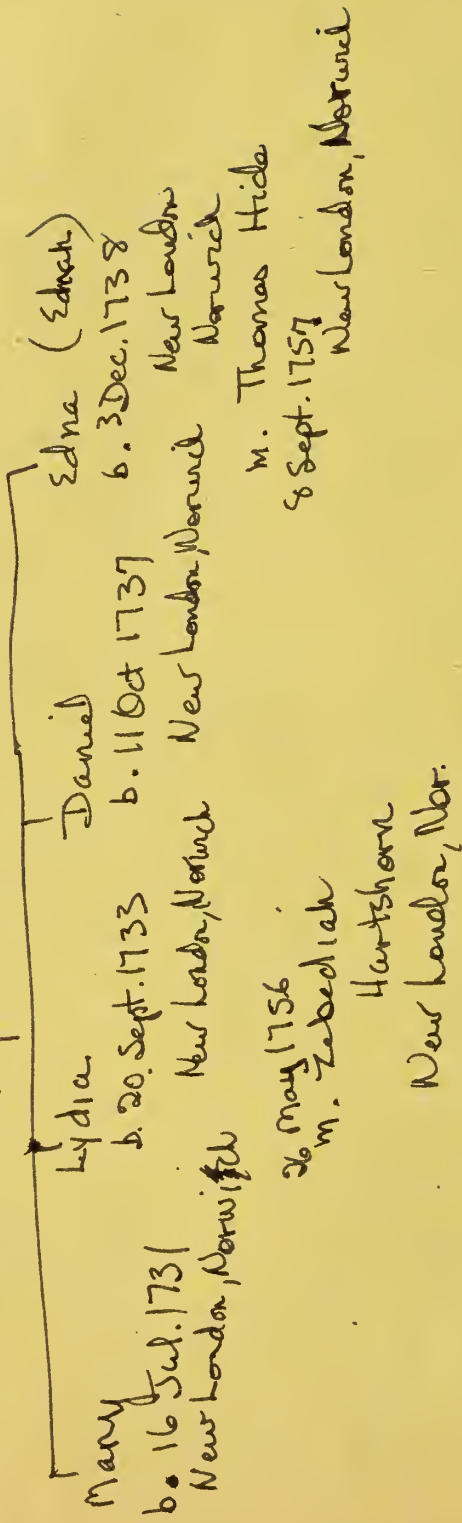 Mary
b. 16 Jul. 1731
New London, Norwich
Lydia
b. 20. Sept. 1733
New London, Norwich
26 May 1756
m. Zebediah
Hartshorn
New London, Nor.
Daniel
b. 11 Oct 1737
New London, Norwich
Edna (Ednah)
b. 3 Dec. 1738
New London
Norwich
m. Thomas Hide
8 Sept. 1757
New London, Norwich